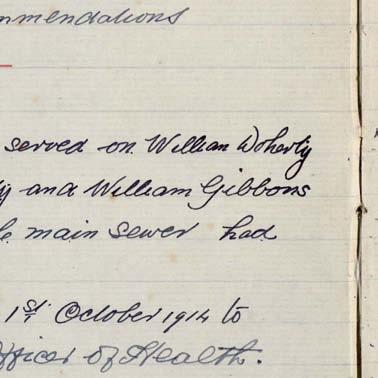 mmendations
served on William Doherty
y and William Gibbons
main sewer had
1st October 1914 to
fficer of Health.